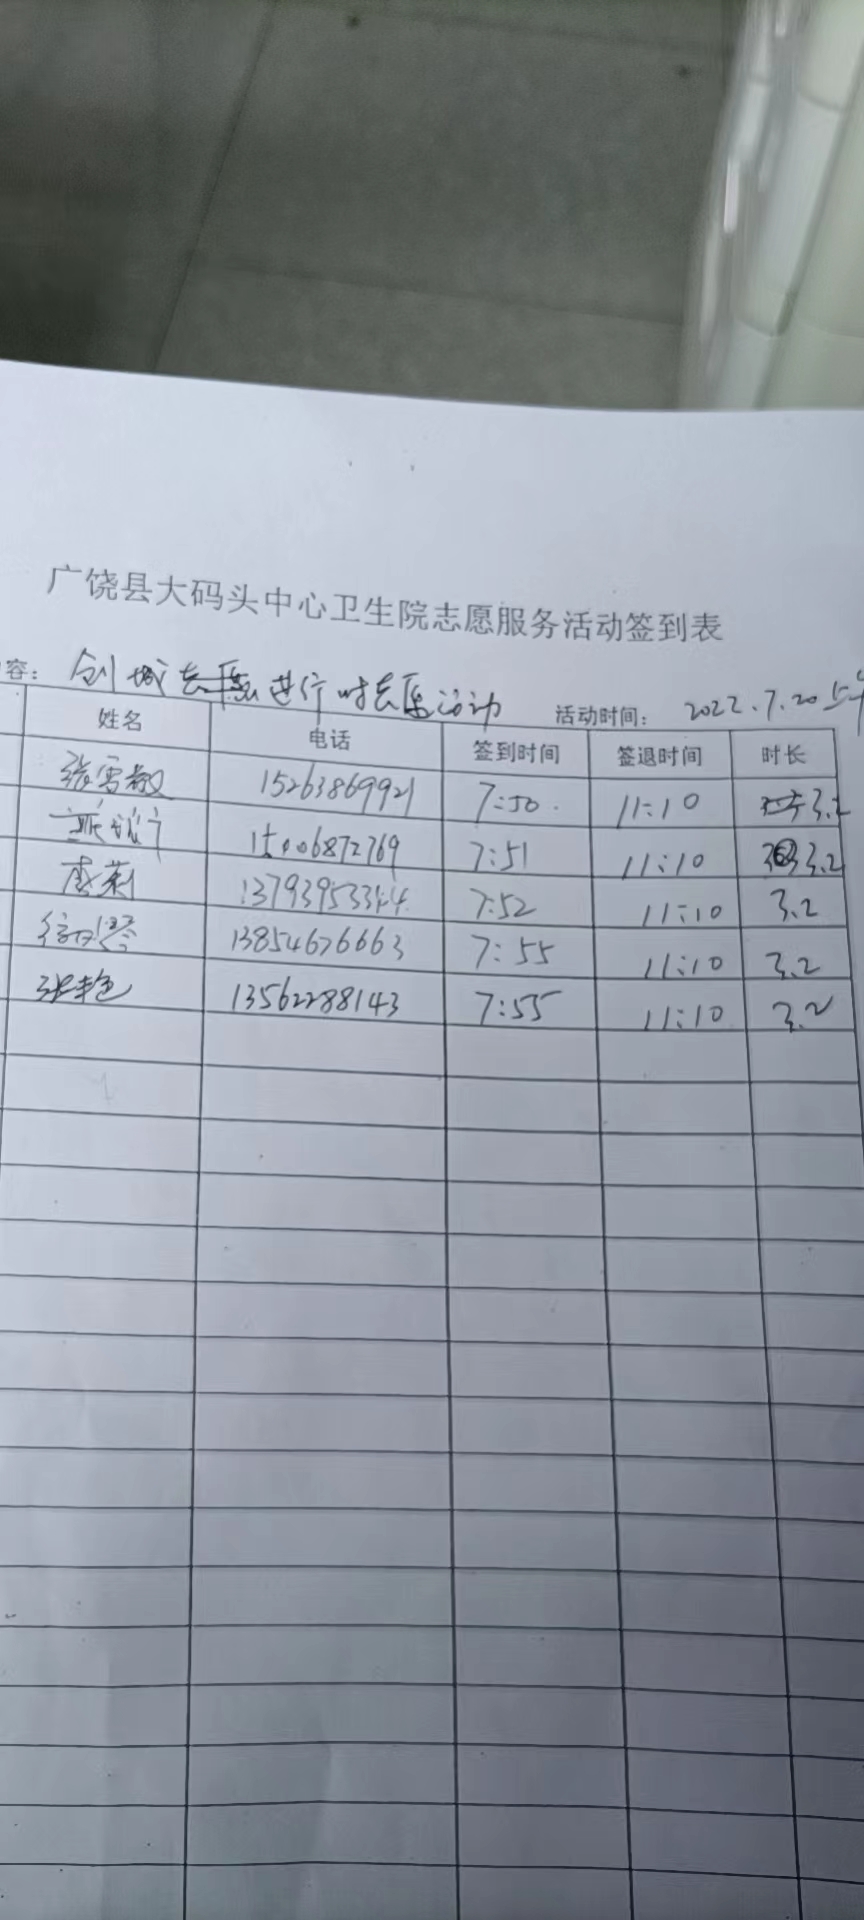 广饶县大码头中心卫生院志愿服务活动签到表
容： 创城志愿进行时志愿活动 活动时间： 2022.7.20上午
姓名 电话 签到时间 签退时间 时长
张雪敏 15263869921 7:50. 11:10 3.2
15006872769 7:51 11:10 3.2
7:52 11:10 3.2
13854676663 7:55 11:10 3.2
张艳 13562288143 7:55 11:10 3.2